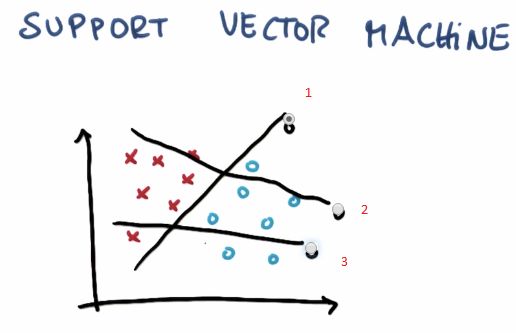 SUPPORT VECTOR MACHiNE
1
2
3